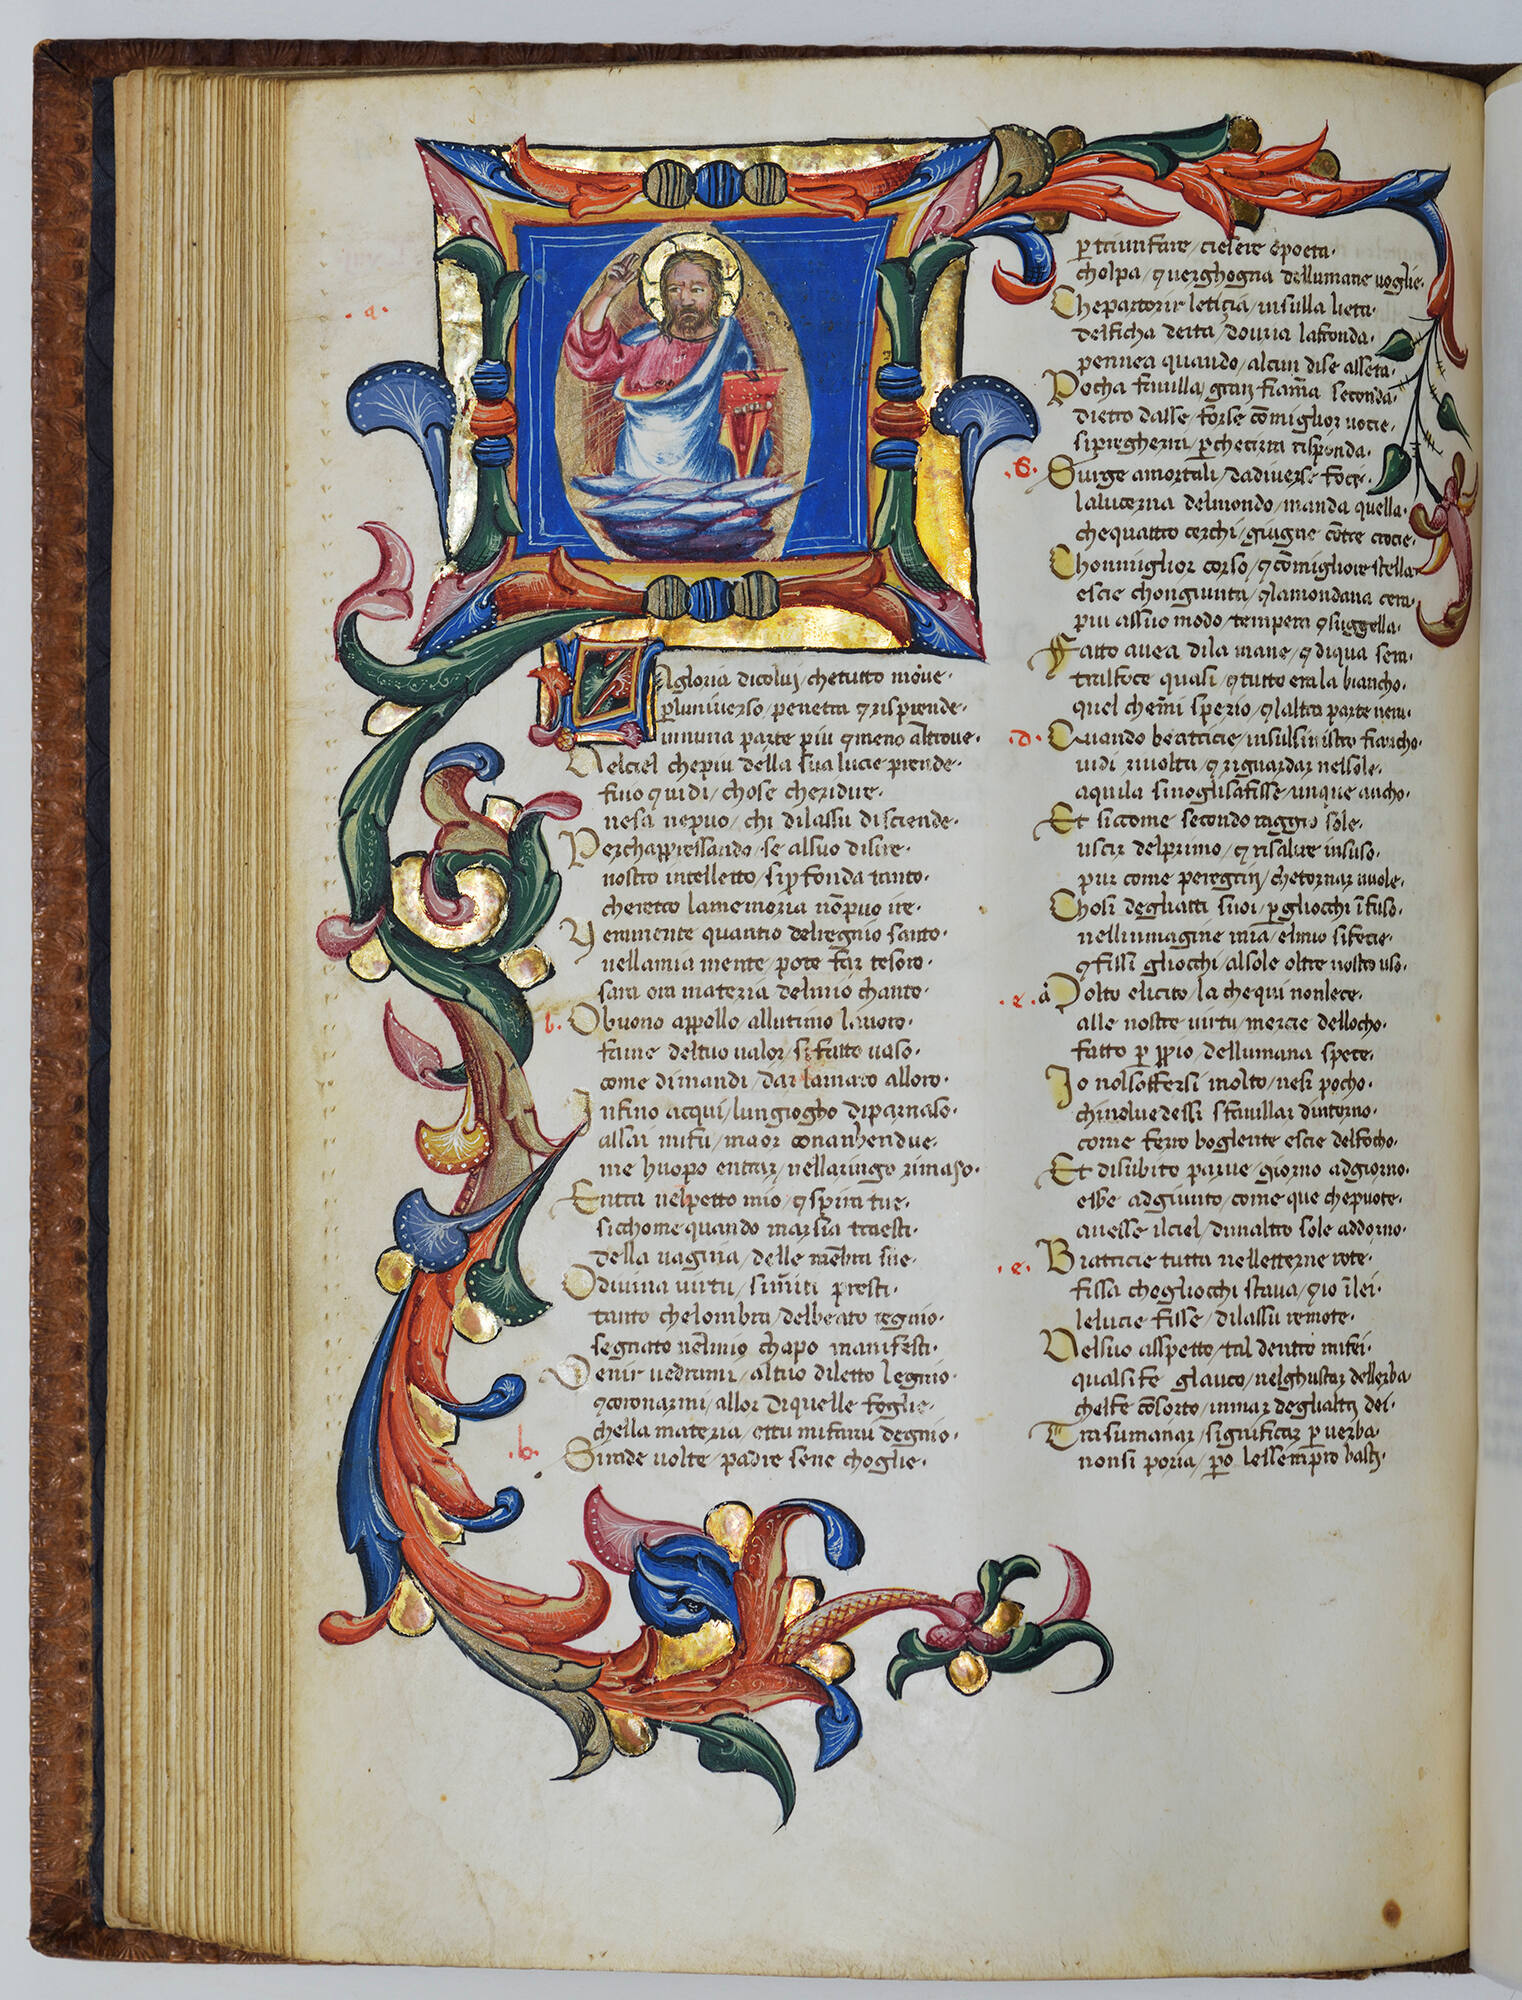 .a.
Lagloria dicoluj / chetutto move.
pluniverso / penetra ꝗ risprende.
innuna parte piu ꝗmeno altroue.
Nelciel chepiu della sua lucie prende.
fuio ꝗuidi / chose cheridire.
nesa nepuo / chi dilassu discende.
Perchappressando / se alsuo disire.
nostro intelletto / si ꝓfonda tanto.
cheretro lamemoria nōpuo ire.
Veramente quantio delregnio santo.
nellamia mente / pote far tesoro.
sara ora materia delmio chanto.
.b. O buono appollo / allutimo lavoro.
fame deltuo valor / si fatto vaso.
come dimandi / dar lamato alloro.
Infino acqui / lungiogho diparnaso.
assai mifu / maor conanbendue.
me huopo entrar / nellaringo rimaso.
Entra nelpetto mio / ꝗ spira tue.
sicchome quando marsia traesti.
della vagina / delle mēbra sue.
O divina virtu / simiti presti.
tanto chelombra / delbeato regnio.
segnato nelmio chapo manifesti.
Venir vedrami / altuo diletto legnio.
ꝗcoronarmi / allor diquelle foglie.
chella materia / ettu mifarai degnio.
.b. Sirade volte / padre sene choglie.
ꝑ triunfare / ciesere epoeta.
cholpa / ꝗverghogna dellumane voglie.
Chepartorir letizia / insulla lieta.
delficha deita / dovria lafronda.
pennea quando / alcun dise asseta.
Pocha favilla / gran fiama seconda.
dietro dasse / forse cōmiglior vocie.
sipregherra / ꝑchecirra risponda.
.S. Surge amortali / dadiverse foci.
lalucerna delmondo / manda quella.
chequattro cerchi / giugne cōtre crocie.
Chonmiglior corso / ꝗcōmigliore stella
escie chongiunta / ꝗlamondana cera.
piu assuo modo / tempera ꝗsuggella.
Fatto avea dila mane / ꝗ diqua sera.
tralfoce quasi / ꝗtutto erala biancho.
quel chemi sperio / ꝗlaltra parte nera.
.d. Quando beatricie / insulsinistro fiancho.
vidi rivolta / ꝗ riguardar nelsole.
aquila sinoglisafisse / unque ancho.
Et siccome secondo raggio sole.
uscir delprimo / ꝗ risalire insuso.
pur come peregrin / chetornar vuole.
Chosi degliatti suoi / ꝑ gliocchi īfuso.
nellimmagine mia / elmio sifecie.
ꝗfissi gliocchi / alsole oltre nostro uso.
.e. Molto elicito / la chequi nonlece.
alle nostre virtu / mercie dellocho.
fatto ꝑ ꝓpio / dellumana spece.
Io nolsoffersi molto / nesi pocho.
chinolvedessi sfavillar dintorno.
come ferro boglente escie delfocho.
Et disubito parve / giorno adgiorno.
esse adgiunto / come que chepuote.
avesse ilciel / dunaltro sole addorno.
.e. Biatricie tutta nelletterne rote.
fissa chegliocchi stava / ꝗio īlei.
lelucie fisse / dilassu remote.
Nelsuo asspetto / tal dentro mifei.
qualsife glauco / nelghustar dellerba
chelfe cōsorto / inmar deglialtri dei.
Trasumanar / significar ꝑ verba
nonsi poria / ꝑo lessempro basti.